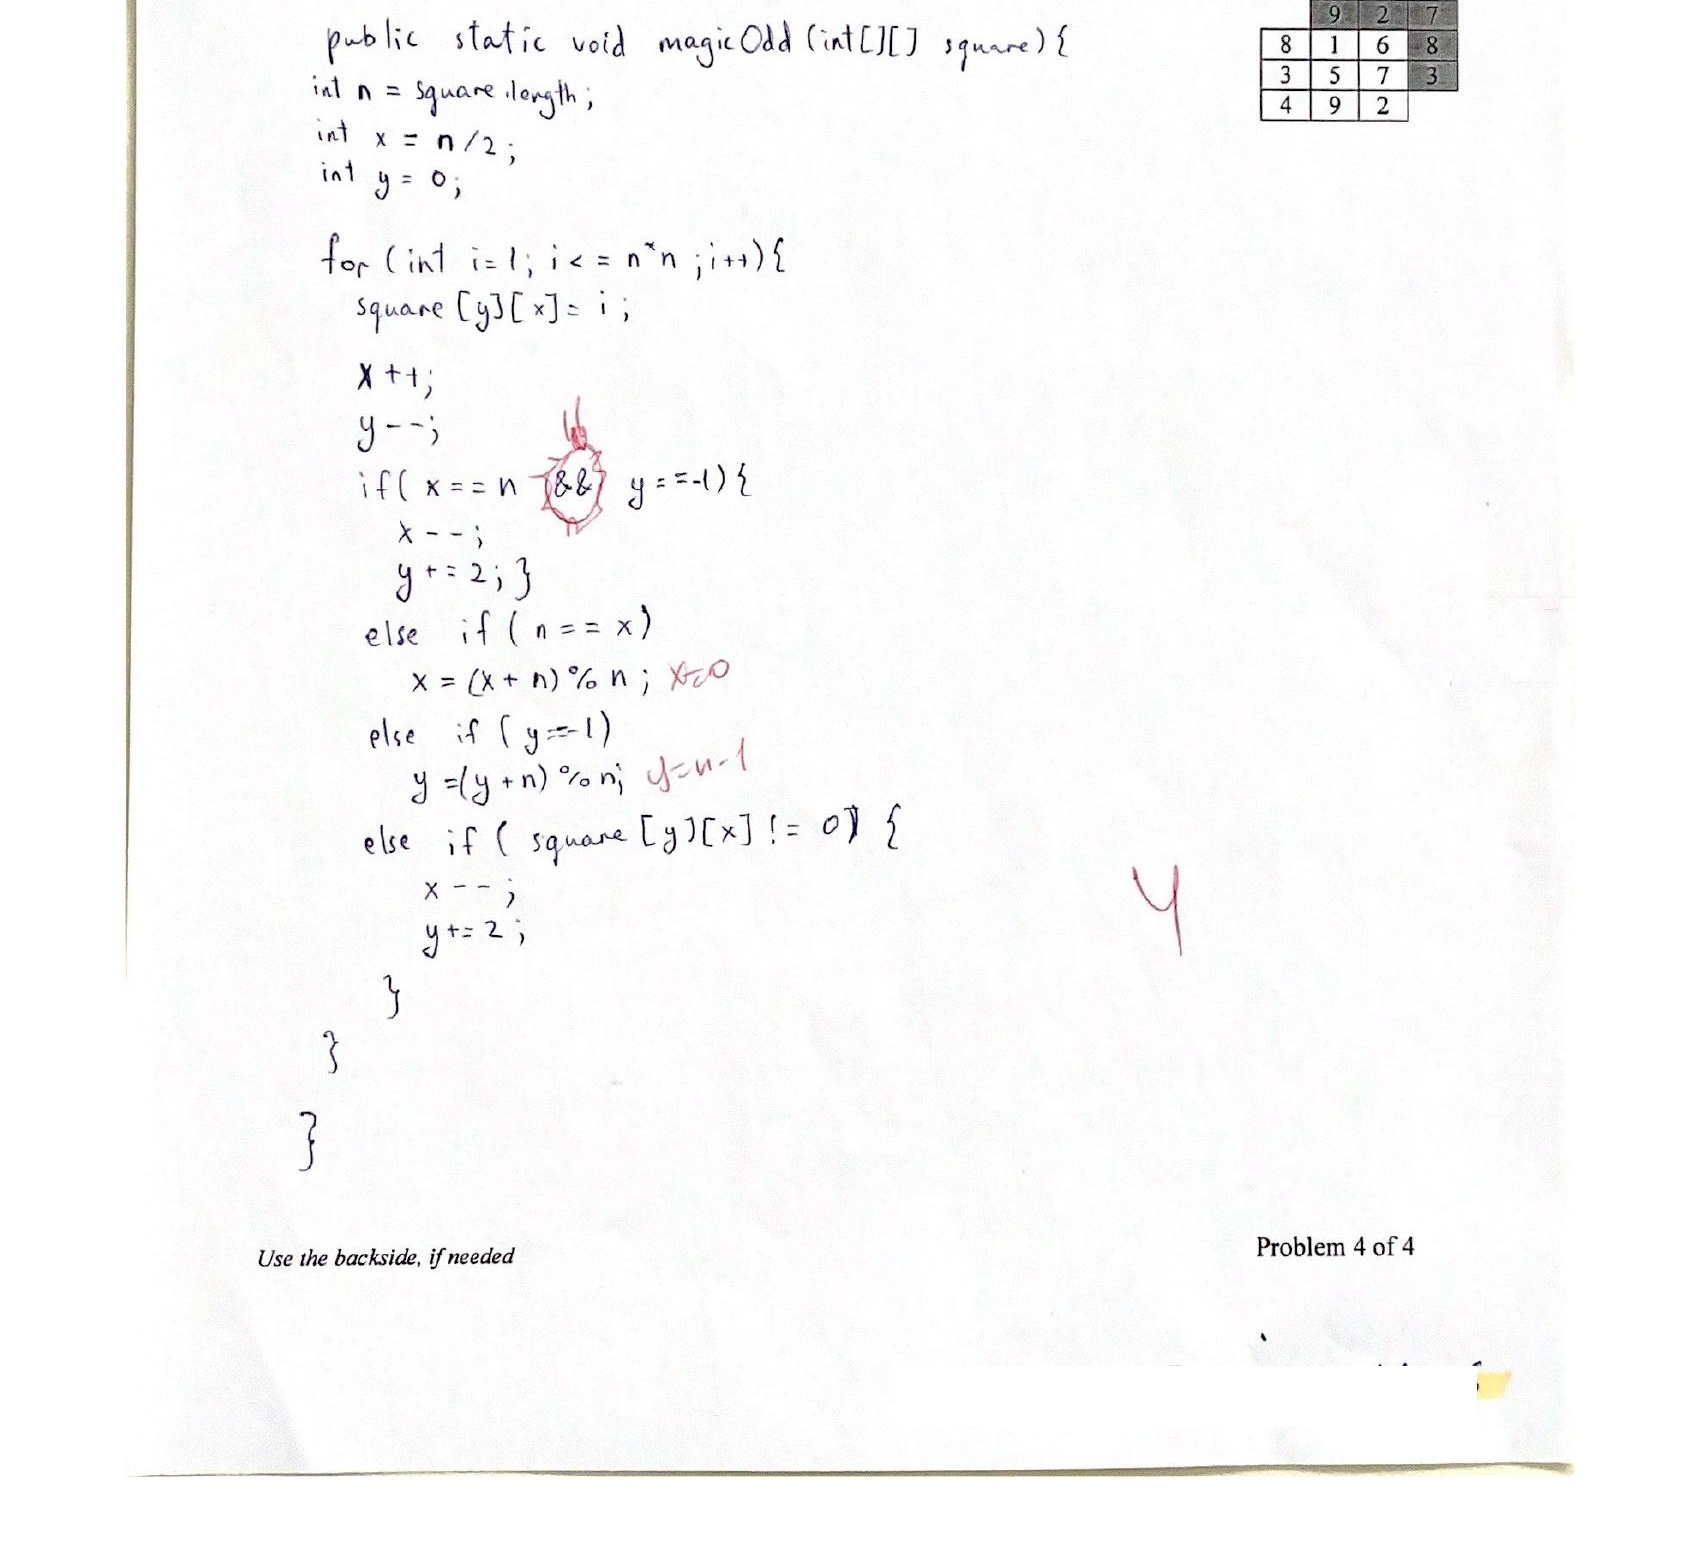 9 2 7
public static void magicOdd (int[][] square){
8 1 6 8
int n = square.length;
3 5 7 3
4 9 2
int x = n/2;
int y = 0;
for (int i=1; i<=n*n;i++){
square [y][x]= i;
x++;
y--;
if( x==n && y==-1){
x--;
y+=2;}
else if (n==x)
x = (x+n)%n; x=0
else if (y==-1)
y=(y+n)%n; y=n-1
else if ( square [y][x] != 0) {
x--;
y+=2;
}
}
}
Use the backside, if needed
Problem 4 of 4